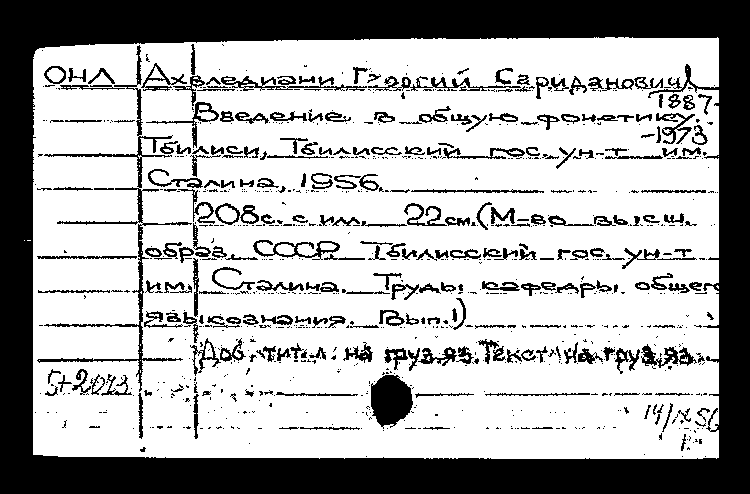 ОНЛ Ахвледиани, Георгий Сариданович,
1887-
Введение в общую фонетику.
-1973
Тбилиси, Тбилисский гос. ун-т им.
Сталина, 1956.
208с. с илл. 22см. (М-во высш.
образ. СССР. Тбилисский гос. ун-т
им. Сталина. Труды кафедры общего
языкознания. Вып.1)
Доб. тит. л. на груз.яз. Текст на груз.яз.
14/IX 56